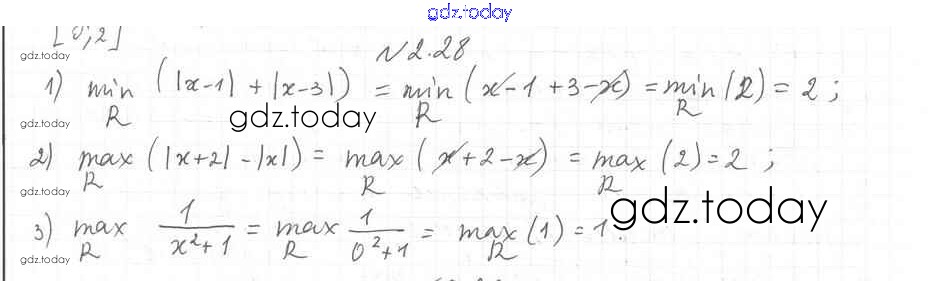 gdz.today
[0;2]
gdz.today
№2.28
1) min_R (|x-1| + |x-3|) = min_R (x-1+3-x) = min_R (2) = 2 ;
gdz.today
gdz.today
2) max_R (|x+2| - |x|) = max_R (x+2-x) = max_R (2) = 2 ;
gdz.today
gdz.today
3) max_R 1/(x²+1) = max_R 1/(0²+1) = max_R (1) = 1.
gdz.today